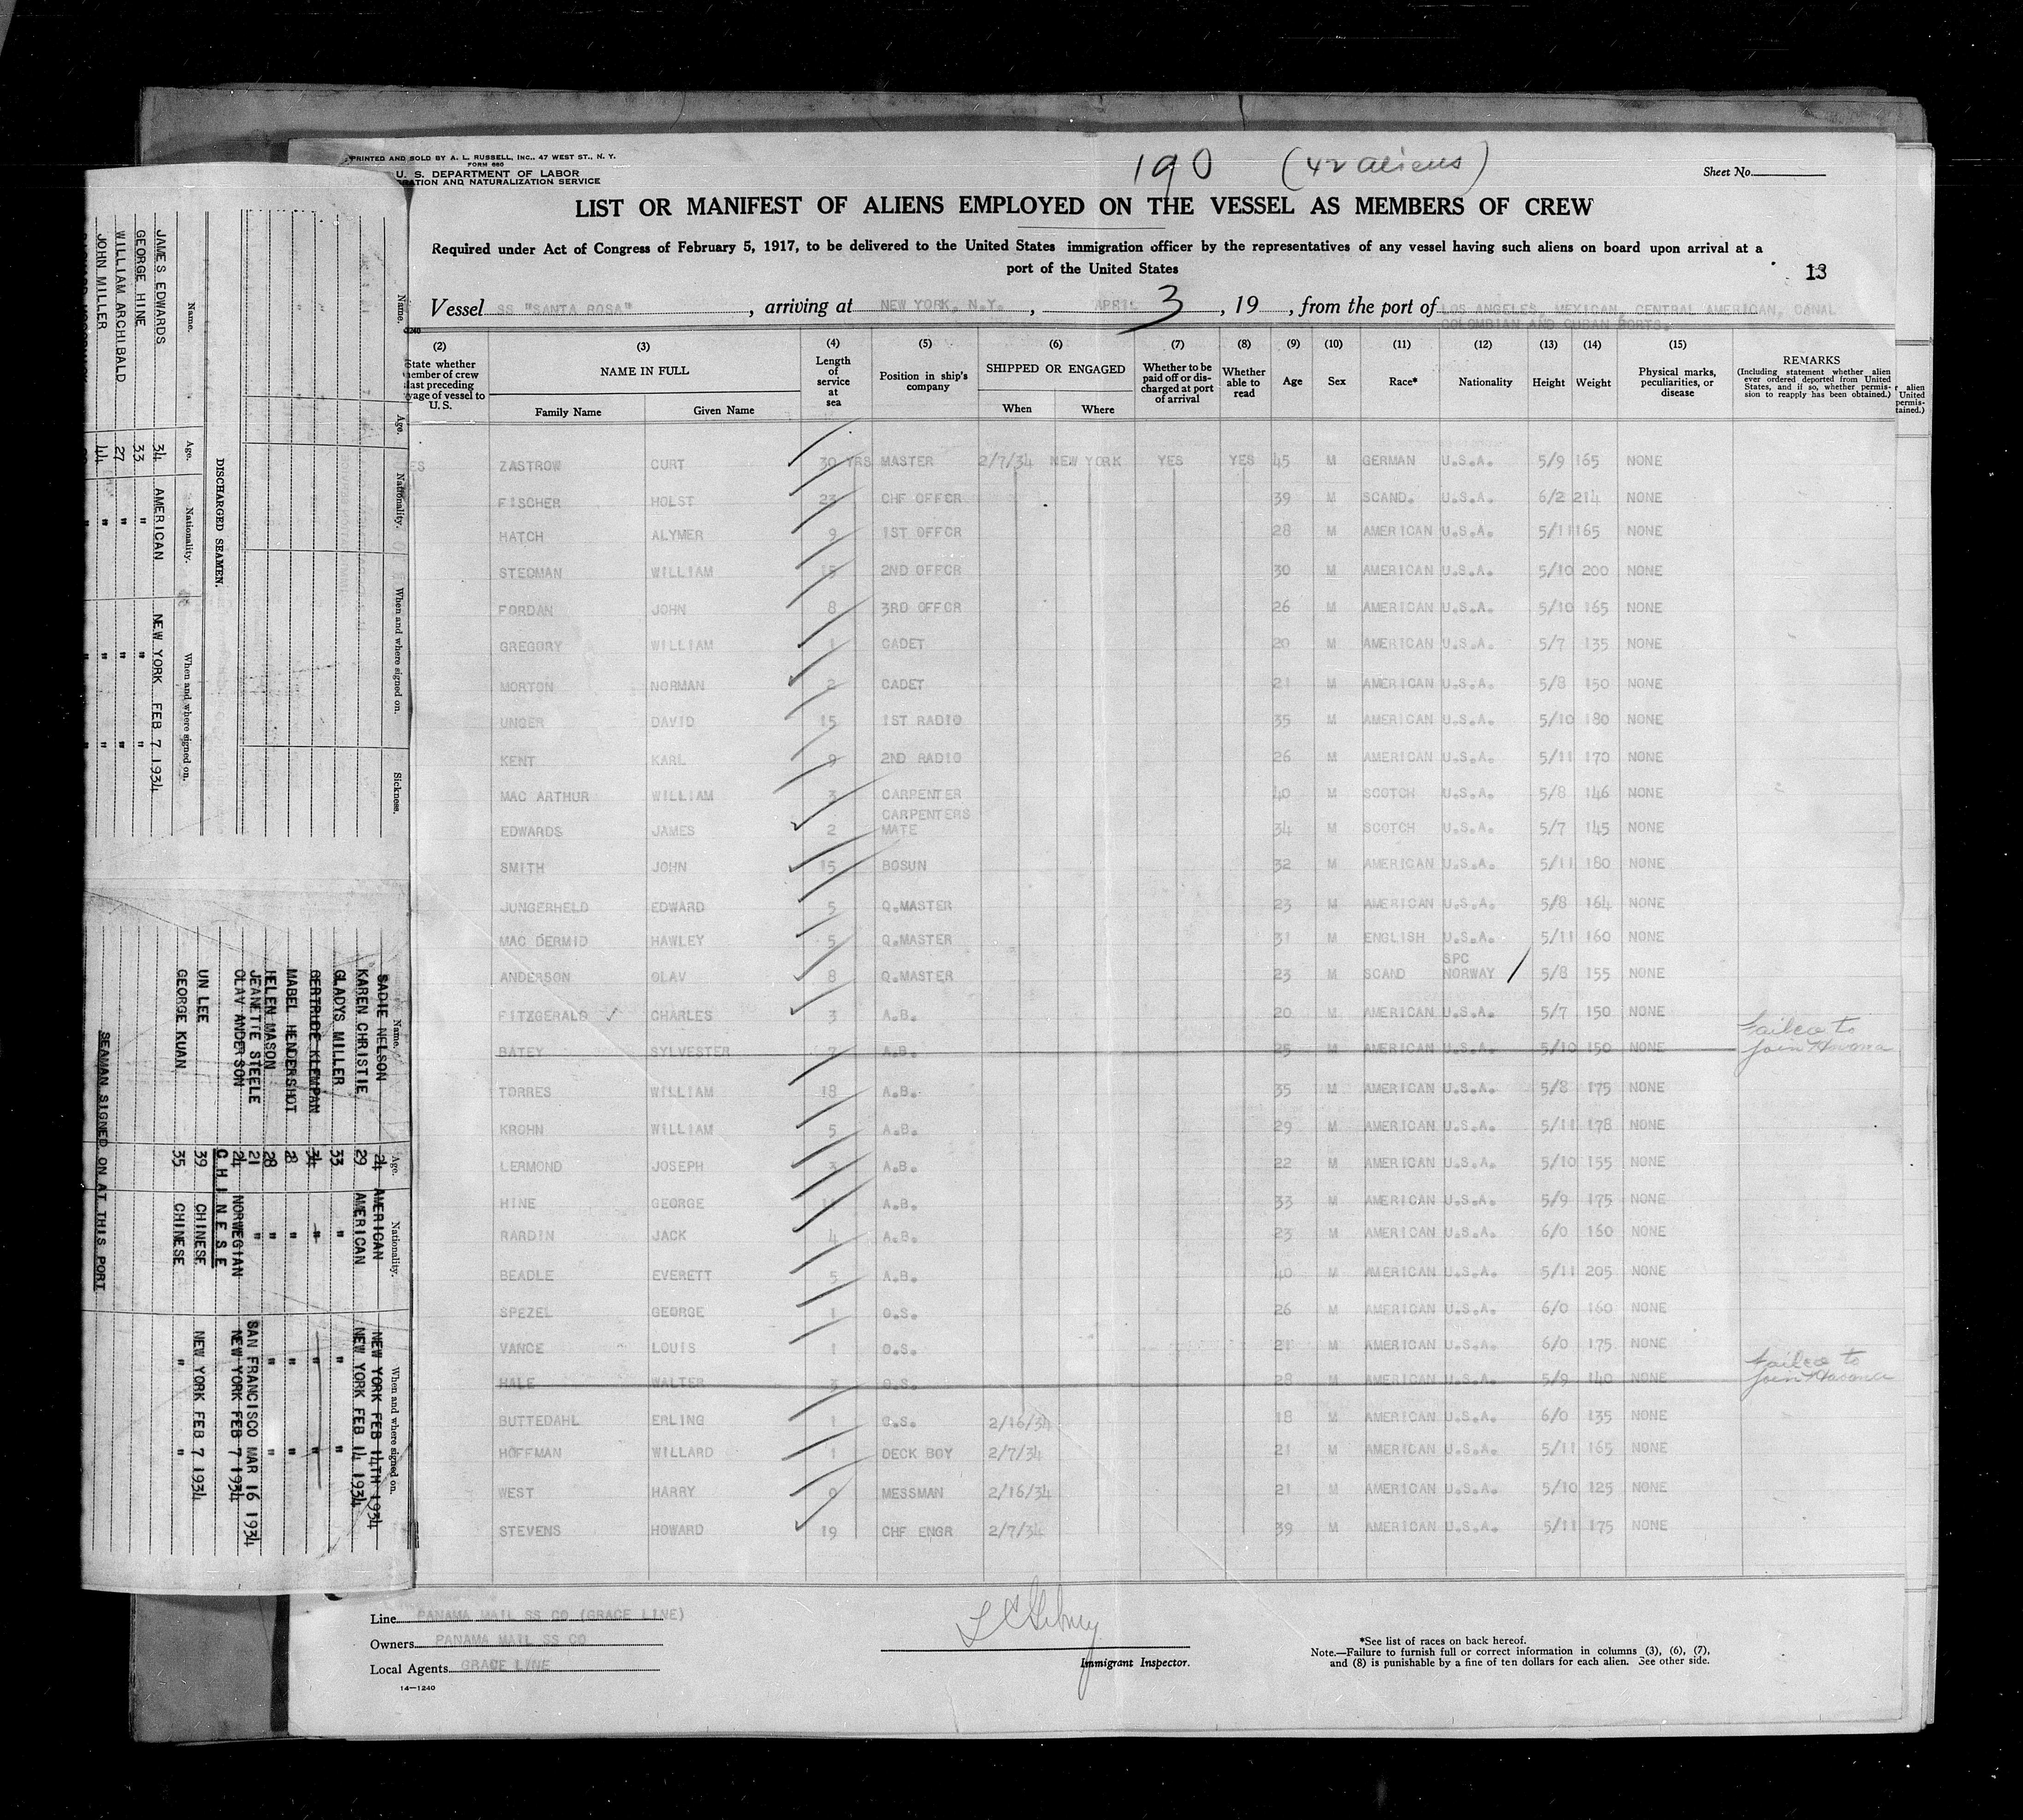 PRINTED AND SOLD BY A. L. RUSSELL, INC., 47 WEST ST., N. Y.
FORM 660
U. S. DEPARTMENT OF LABOR
RATION AND NATURALIZATION SERVICE
190 (42 aliens)
Sheet No.
LIST OR MANIFEST OF ALIENS EMPLOYED ON THE VESSEL AS MEMBERS OF CREW
Required under Act of Congress of February 5, 1917, to be delivered to the United States immigration officer by the representatives of any vessel having such aliens on board upon arrival at a
port of the United States
13
Vessel SS "SANTA ROSA", arriving at NEW YORK, N.Y., APRIL 3, 19, from the port of LOS ANGELES, MEXICAN, CENTRAL AMERICAN, CANAL
COLOMBIAN AND CUBAN PORTS.
(2) (3) (4) (5) (6) (7) (8) (9) (10) (11) (12) (13) (14) (15)
State whether member of crew last preceding voyage of vessel to U. S.
NAME IN FULL
Family Name Given Name
Length of service at sea
Position in ship's company
SHIPPED OR ENGAGED
When Where
Whether to be paid off or discharged at port of arrival
Whether able to read
Age Sex Race* Nationality Height Weight
Physical marks, peculiarities, or disease
REMARKS
(Including statement whether alien ever ordered deported from United States, and if so, whether permission to reapply has been obtained.)
ES ZASTROW CURT 30 YRS MASTER 2/7/34 NEW YORK YES YES 45 M GERMAN U.S.A. 5/9 165 NONE
FISCHER HOLST 23 CHF OFFCR 39 M SCAND. U.S.A. 6/2 214 NONE
HATCH ALYMER 9 1ST OFFCR 28 M AMERICAN U.S.A. 5/11 165 NONE
STEDMAN WILLIAM 15 2ND OFFCR 30 M AMERICAN U.S.A. 5/10 200 NONE
FORDAN JOHN 8 3RD OFFCR 26 M AMERICAN U.S.A. 5/10 165 NONE
GREGORY WILLIAM 1 CADET 20 M AMERICAN U.S.A. 5/7 135 NONE
MORTON NORMAN 2 CADET 21 M AMERICAN U.S.A. 5/8 150 NONE
UNGER DAVID 15 1ST RADIO 35 M AMERICAN U.S.A. 5/10 180 NONE
KENT KARL 9 2ND RADIO 26 M AMERICAN U.S.A. 5/11 170 NONE
MAC ARTHUR WILLIAM 3 CARPENTER 40 M SCOTCH U.S.A. 5/8 146 NONE
EDWARDS JAMES 2 CARPENTERS MATE 34 M SCOTCH U.S.A. 5/7 145 NONE
SMITH JOHN 15 BOSUN 32 M AMERICAN U.S.A. 5/11 180 NONE
JUNGERHELD EDWARD 5 Q.MASTER 23 M AMERICAN U.S.A. 5/8 164 NONE
MAC DERMID HAWLEY 5 Q.MASTER 31 M ENGLISH U.S.A. 5/11 160 NONE
ANDERSON OLAV 8 Q.MASTER 23 M SCAND SPC NORWAY 5/8 155 NONE
FITZGERALD CHARLES 3 A.B. 20 M AMERICAN U.S.A. 5/7 150 NONE
BATEY SYLVESTER 7 A.B. 25 M AMERICAN U.S.A. 5/10 150 NONE Failed to join Havana
TORRES WILLIAM 18 A.B. 35 M AMERICAN U.S.A. 5/8 175 NONE
KROHN WILLIAM 5 A.B. 29 M AMERICAN U.S.A. 5/11 178 NONE
LERMOND JOSEPH 3 A.B. 22 M AMERICAN U.S.A. 5/10 155 NONE
HINE GEORGE A.B. 33 M AMERICAN U.S.A. 5/9 175 NONE
RARDIN JACK 4 A.B. 23 M AMERICAN U.S.A. 6/0 160 NONE
BEADLE EVERETT 5 A.B. 40 M AMERICAN U.S.A. 5/11 205 NONE
SPEZEL GEORGE 1 O.S. 26 M AMERICAN U.S.A. 6/0 160 NONE
VANCE LOUIS 1 O.S. 21 M AMERICAN U.S.A. 6/0 175 NONE
HALE WALTER 3 O.S. 28 M AMERICAN U.S.A. 5/9 140 NONE Failed to join Havana
BUTTEDAHL ERLING 1 O.S. 2/16/34 18 M AMERICAN U.S.A. 6/0 135 NONE
HOFFMAN WILLARD 1 DECK BOY 2/7/34 21 M AMERICAN U.S.A. 5/11 165 NONE
WEST HARRY 0 MESSMAN 2/16/34 21 M AMERICAN U.S.A. 5/10 125 NONE
STEVENS HOWARD 19 CHF ENGR 2/7/34 39 M AMERICAN U.S.A. 5/11 175 NONE
Line PANAMA MAIL SS CO (GRACE LINE)
Owners PANAMA MAIL SS CO
Local Agents GRACE LINE
14—1240
Immigrant Inspector.
*See list of races on back hereof.
Note.—Failure to furnish full or correct information in columns (3), (6), (7),
and (8) is punishable by a fine of ten dollars for each alien. See other side.
Name. Age. Nationality. When and where signed on. Sickness.
DISCHARGED SEAMEN.
Name. Age. Nationality. When and where signed on.
JAMES EDWARDS 34 AMERICAN NEW YORK FEB 7 1934
GEORGE HINE 33 " " "
WILLIAM ARCHIBALD 27 " " "
JOHN MILLER 44 " " "
Name. Age. Nationality. When and where signed on.
SADIE NELSON 24 AMERICAN NEW YORK FEB 14TH 1934
KAREN CHRISTIE 29 AMERICAN NEW YORK FEB 14 1934
GLADYS MILLER 33 " " "
GERTRUDE KLEMPAN 34 " " "
MABEL HENDERSHOT 28 " " "
HELEN MASON 28 " " "
JEANETTE STEELE 21 " SAN FRANCISCO MAR 16 1934
OLAV ANDERSON 24 NORWEGIAN NEW YORK FEB 7 1934
CHINESE
UN LEE 39 CHINESE NEW YORK FEB 7 1934
GEORGE KUAN 35 CHINESE " "
SEAMAN SIGNED ON AT THIS PORT